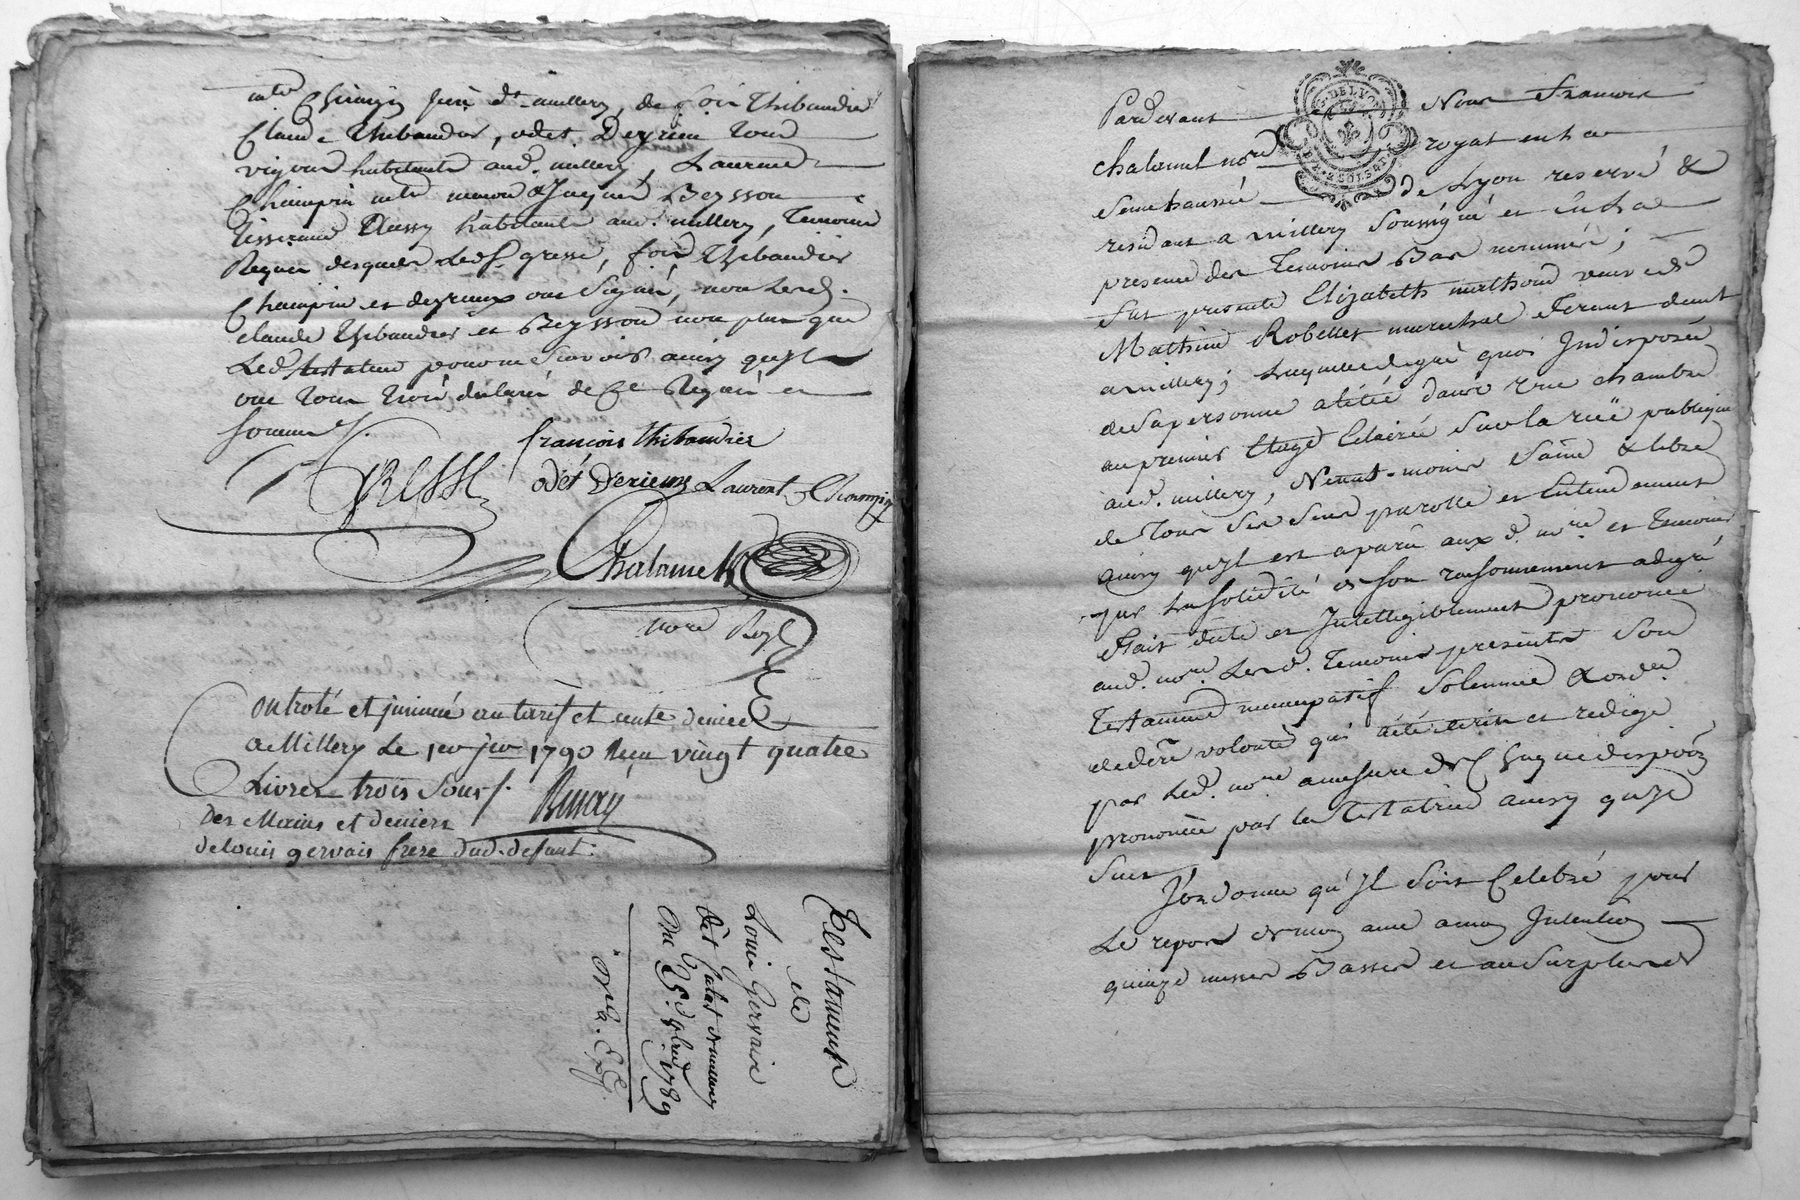 mtre Chirurgien Juré dt. millery, de foir Thibaudier
Claude Thibaudier, odet Deyrieu tour
vigneron habitants aud. millery, Laurent
Champin mtre maçon & Jacques Beysson
tisserand Classy habitants aud. millery, temoins
Requis desquels led. S. gresse, foir Thibaudier
Champin et deyrieux ont signé, non led.
claude Thibaudier et Beysson non plus que
Led. testateur pour ne scavoir ainsy qu'jl
ont tous trois déclaré de ce Requis et
sommés.
GRESSE
françois thibaudier
odét Derieux Laurent Champin
Chalamel
nore Royl
Controlé et jnsinué au tarif et cente denier
a Millery Le 1er jer 1790 Reçu vingt quatre
Livres trois Sous
des Mains et deniers
de louis gervais frere dud. defunt.
Testament
de
Louis Gervais
du 25 1789
Expé.
DE LYON
Pardevant Nous François
chalamel nore royal en la
Senechaussée de Lyon reservé &
residant a millery Soussigné et en la
presence des temoins Bas nommés;
fut presente Elizabeth mathoud veuve de
Mathieu Robellet marechal ferant demt
a millery; Laquelle de gré quoi Jndisposée
de sa personne alétée dans une chambre
au premier Etage Eclairée Sur la rüe publique
aud. millery, Neant-moins Saine & libre
de tous Ses Sens parolle et Entendement
ainsy qu'jl est aparû aux d. nore et temoins
par La solidité de son raisonnement a dégré
fait dicté et Jntelligiblement prononcé
aud. nore Lesd. temoins presents Son
testament nuncupatif Solemnel & ordre
de dere volonté qui a été ecrit et redigé
par Led. nore a mesure de Chaque dispoon
prononcée par la testatrice ainsy qu'jl
Suit
J'ordonne qu'Jl Soit Celebré pour
Le repos de mon ame a mon Jntention
quinze messes Basses et au Surplus de